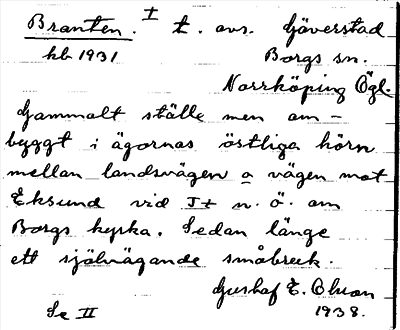 Branten. I t. avs. Göverstad
kb 1931 Borgs sn.
Norrköping Ögl.
Gammalt ställe men om-
byggt i ägornas östliga hörn
mellan landsvägen o vägen mot
Eksund vid J+ n. ö. om
Borgs kyrka. Sedan länge
ett självägande småbruk.
Gustaf E. Olsson
Se II 1938.